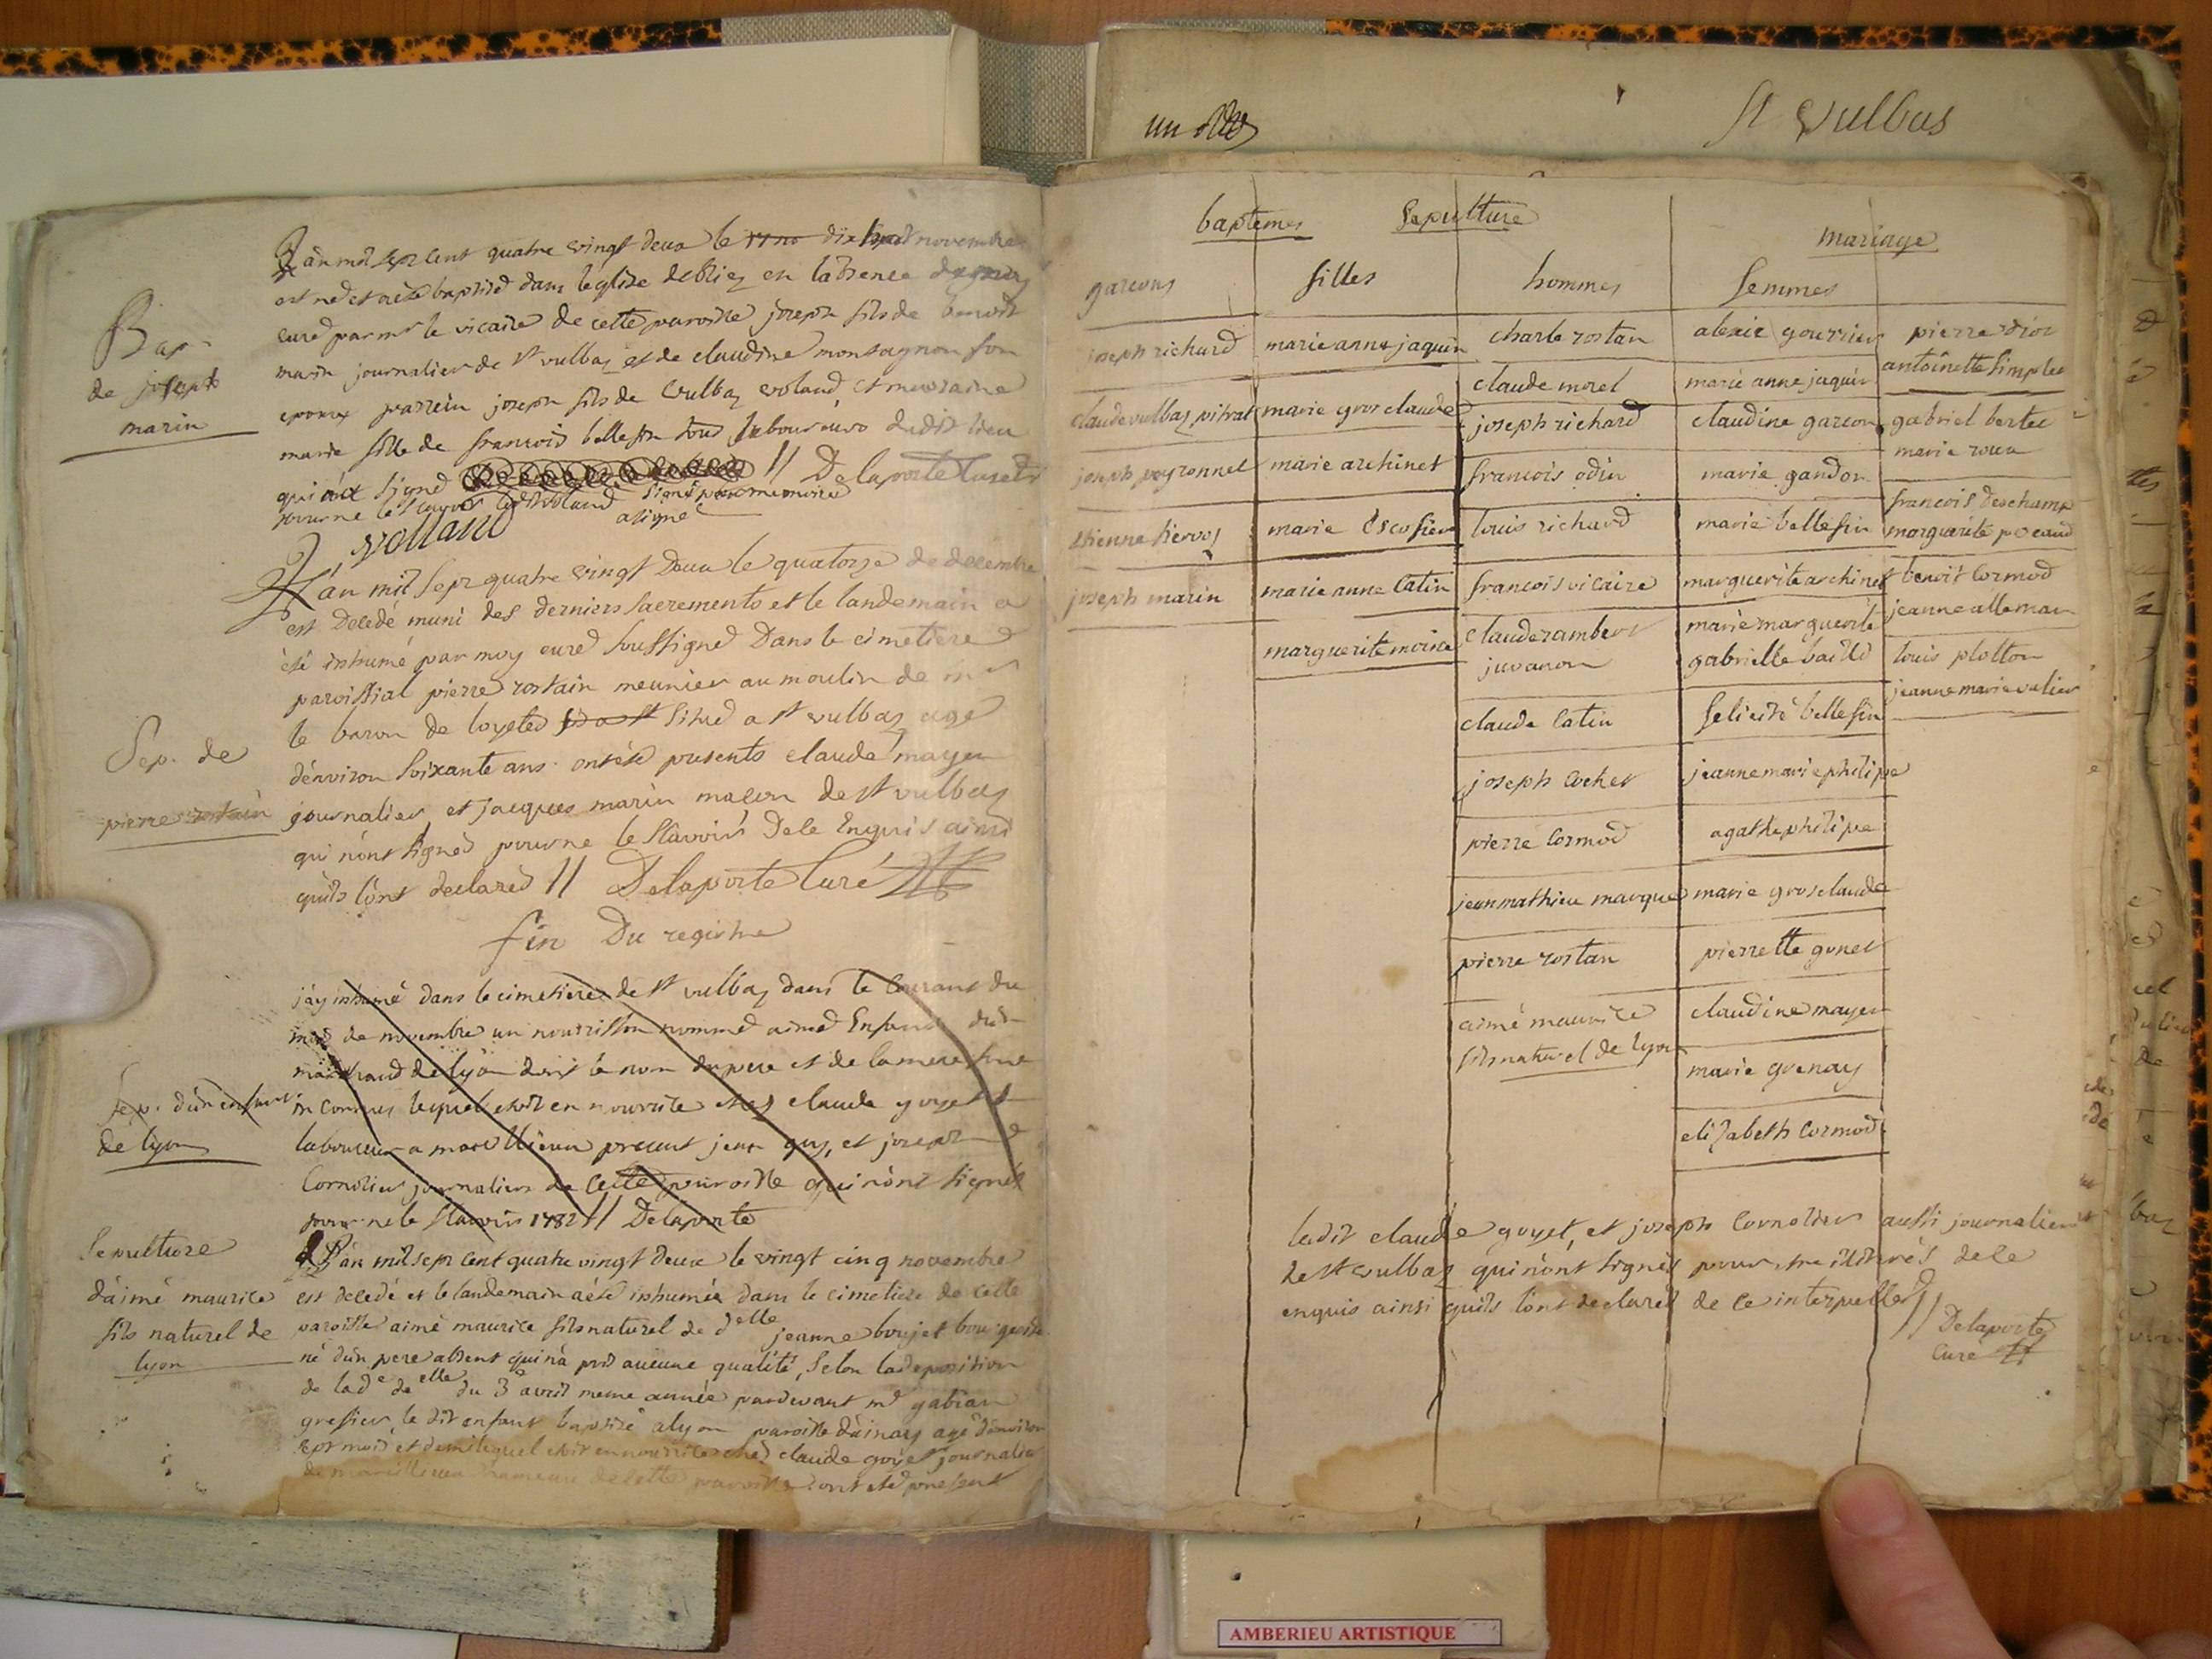 un
St Vulbas
Bap.
de joseph
marin
L'an mil sept cent quatre vingt deux le dix novembre
est né et a été baptisé dans leglise de Bliez en labsence de
curé par mr le vicaire de cette paroisse joseph fils de benoit
marin journalier de st vulbaz et de claudine montagnon son
epouse parrein joseph fils de vulbaz voland, et marraine
marie fille de francois bellefin tous laboureurs dudit lieu
qui ont signé // Delaporte Curé
pour ne le scavoir ledit voland a signé
J volland
L'an mil sept quatre vingt deux le quatorze de decembre
est decedé muni des derniers sacrements et le landemain a
été inhumé par moy curé soussigné dans le cimetiere
paroissial pierre rostain meunier au moulin de mr
le baron de loyetes situé a st vulbaz agé
d'environ soixante ans. ont été presents claude mayer
journalier et jacques marin macon de st vulbaz
qui n'ont signé pour ne le scavoir de ce enquis ainsi
qu'ils l'ont declaré // Delaporte Curé
Sep. de
pierre rostain
fin Du registre
j'ay inhumé dans le cimetiere de st vulbaz dans le courant du
mois de novembre un nourrisson nommé aimé enfant d'un
marchand de lyon dont le nom du pere et de la mere sont
inconnus lequel etoit en nourrice chez claude goyet
laboureur a marcillieux present jean guy, et joseph
Cornolier journaliers de cette paroisse qui n'ont signé
pour ne le scavoir 1782 // Delaporte
sep. d'un enfant
de lyon
Sepulture
d'aimé maurice
fils naturel de
lyon
L'an mil sept cent quatre vingt deux le vingt cinq novembre
est decedé et le landemain a été inhumé dans le cimetiere de cette
paroisse aimé maurice fils naturel de delle jeanne boujet bourgeoise
né d'un pere absent qui n'a pris aucune qualité, selon la deposition
de lade delle du 3 avril meme année pardevant mr gabian
grefier, le dit enfant baptisé a lyon paroisse d'ainay agé d'environ
sept mois et demi lequel etoit en nourrice chez claude goyet journalier
de marcillieux hameau de cette paroisse ont eté present
baptemes Sepulture mariage
garcons filles hommes femmes
joseph richard marie anne jaquin charle rostan alexie gourrier pierre dior
antoinette simplet
claude morel marie anne jaquin
claude vulbaz pitrat marie grosclaude joseph richard claudine garcon gabriel bertet
marie roux
joseph peyronnet marie archinet francois odin marie gandon
francois deschamp
etienne hervoz marie Escofier louis richard marie bellefin marguerite poccaud
joseph marin marie anne Catin francois vicaire marguerite archinet benoit Cormod
jeanne alleman
marguerite moine claude rambert marie marguerite
juvanon gabrielle baillé louis plotton
jeanne marie valier
claude Catin felicité bellefin
joseph Cochet jeanne marie philipe
pierre Cormod agathe philipe
jean mathieu marque marie grosclaude
pierre rostan pierrette gonet
aimé maurice claudine mayer
fils naturel de lyon
marie grenay
elizabeth Cormod
ledit claude goyet, et joseph Cornolier aussi journalier
de st vulbaz qui n'ont signés pour etre illiterés de ce
enquis ainsi qu'ils l'ont declaré de ce interpellé //
Delaporte
Curé
AMBERIEU ARTISTIQUE